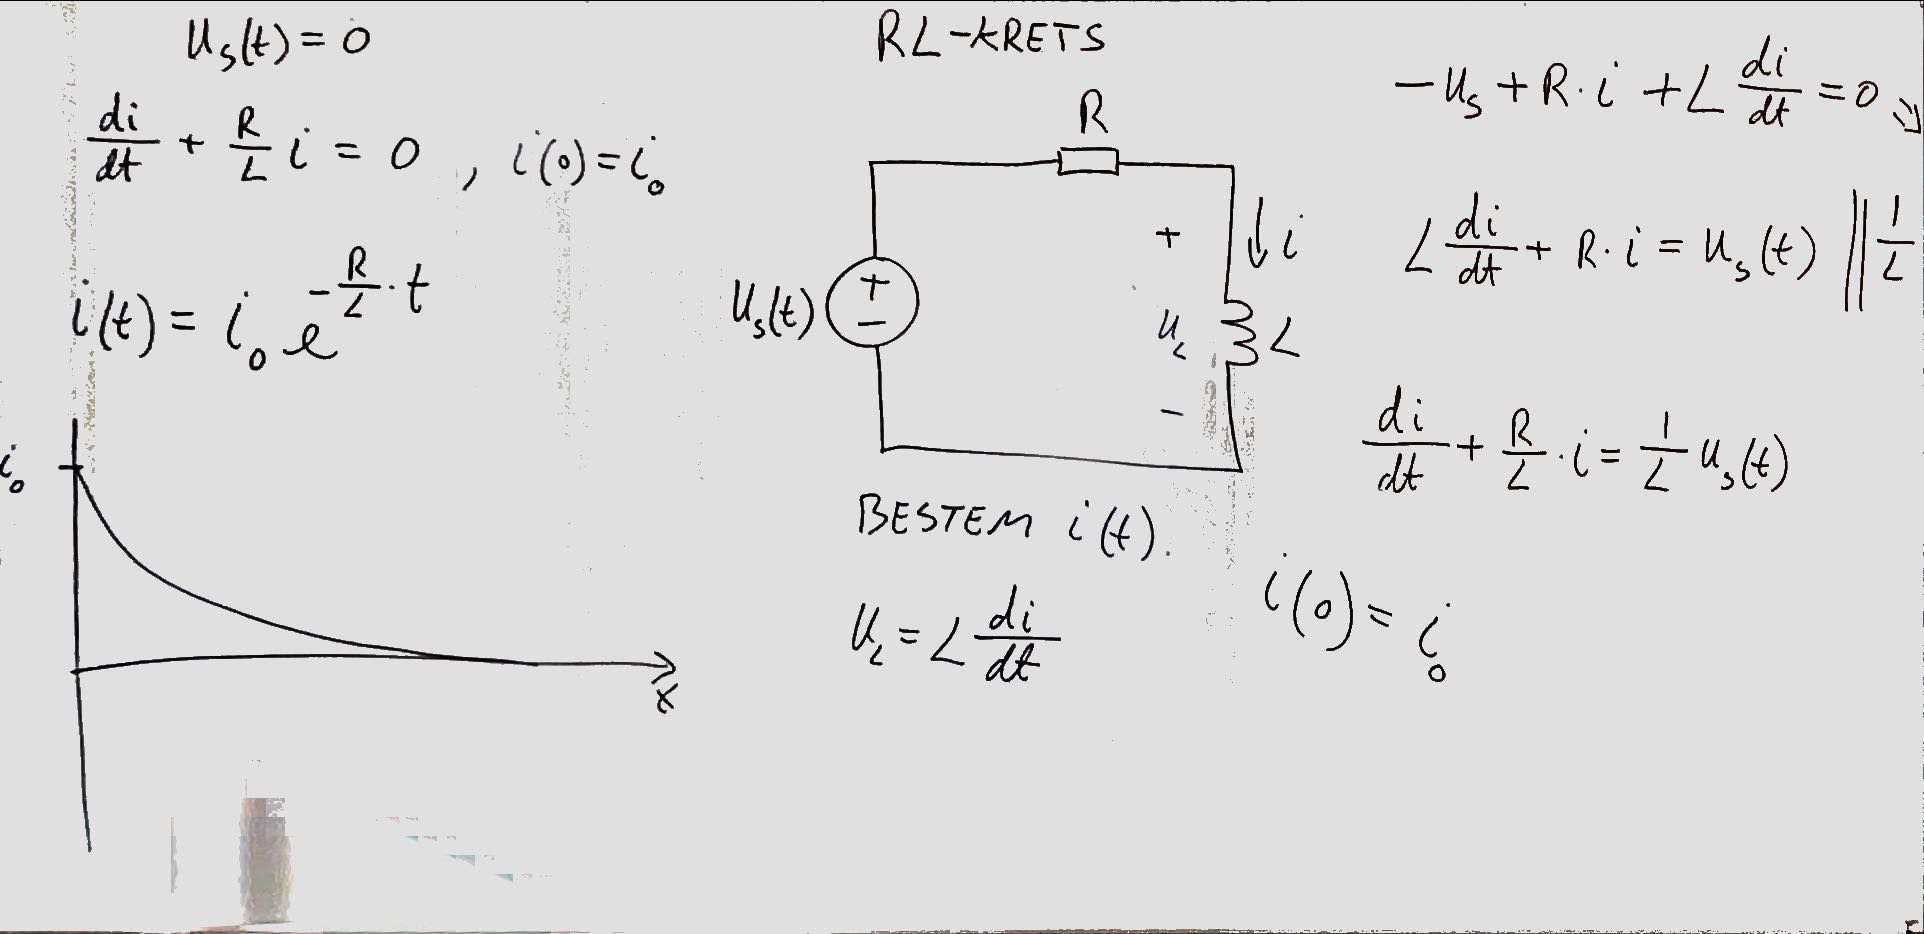 U_s(t) = 0
di/dt + R/L i = 0 , i(0) = i_0
i(t) = i_0 e^{-R/L · t}
i_0
x
RL-KRETS
R
U_s(t)
+
−
+
u_L
−
i
L
BESTEM i(t).
U_L = L di/dt
−U_s + R · i + L di/dt = 0
L di/dt + R · i = U_s(t) || 1/L
di/dt + R/L · i = 1/L U_s(t)
i(0) = i_0